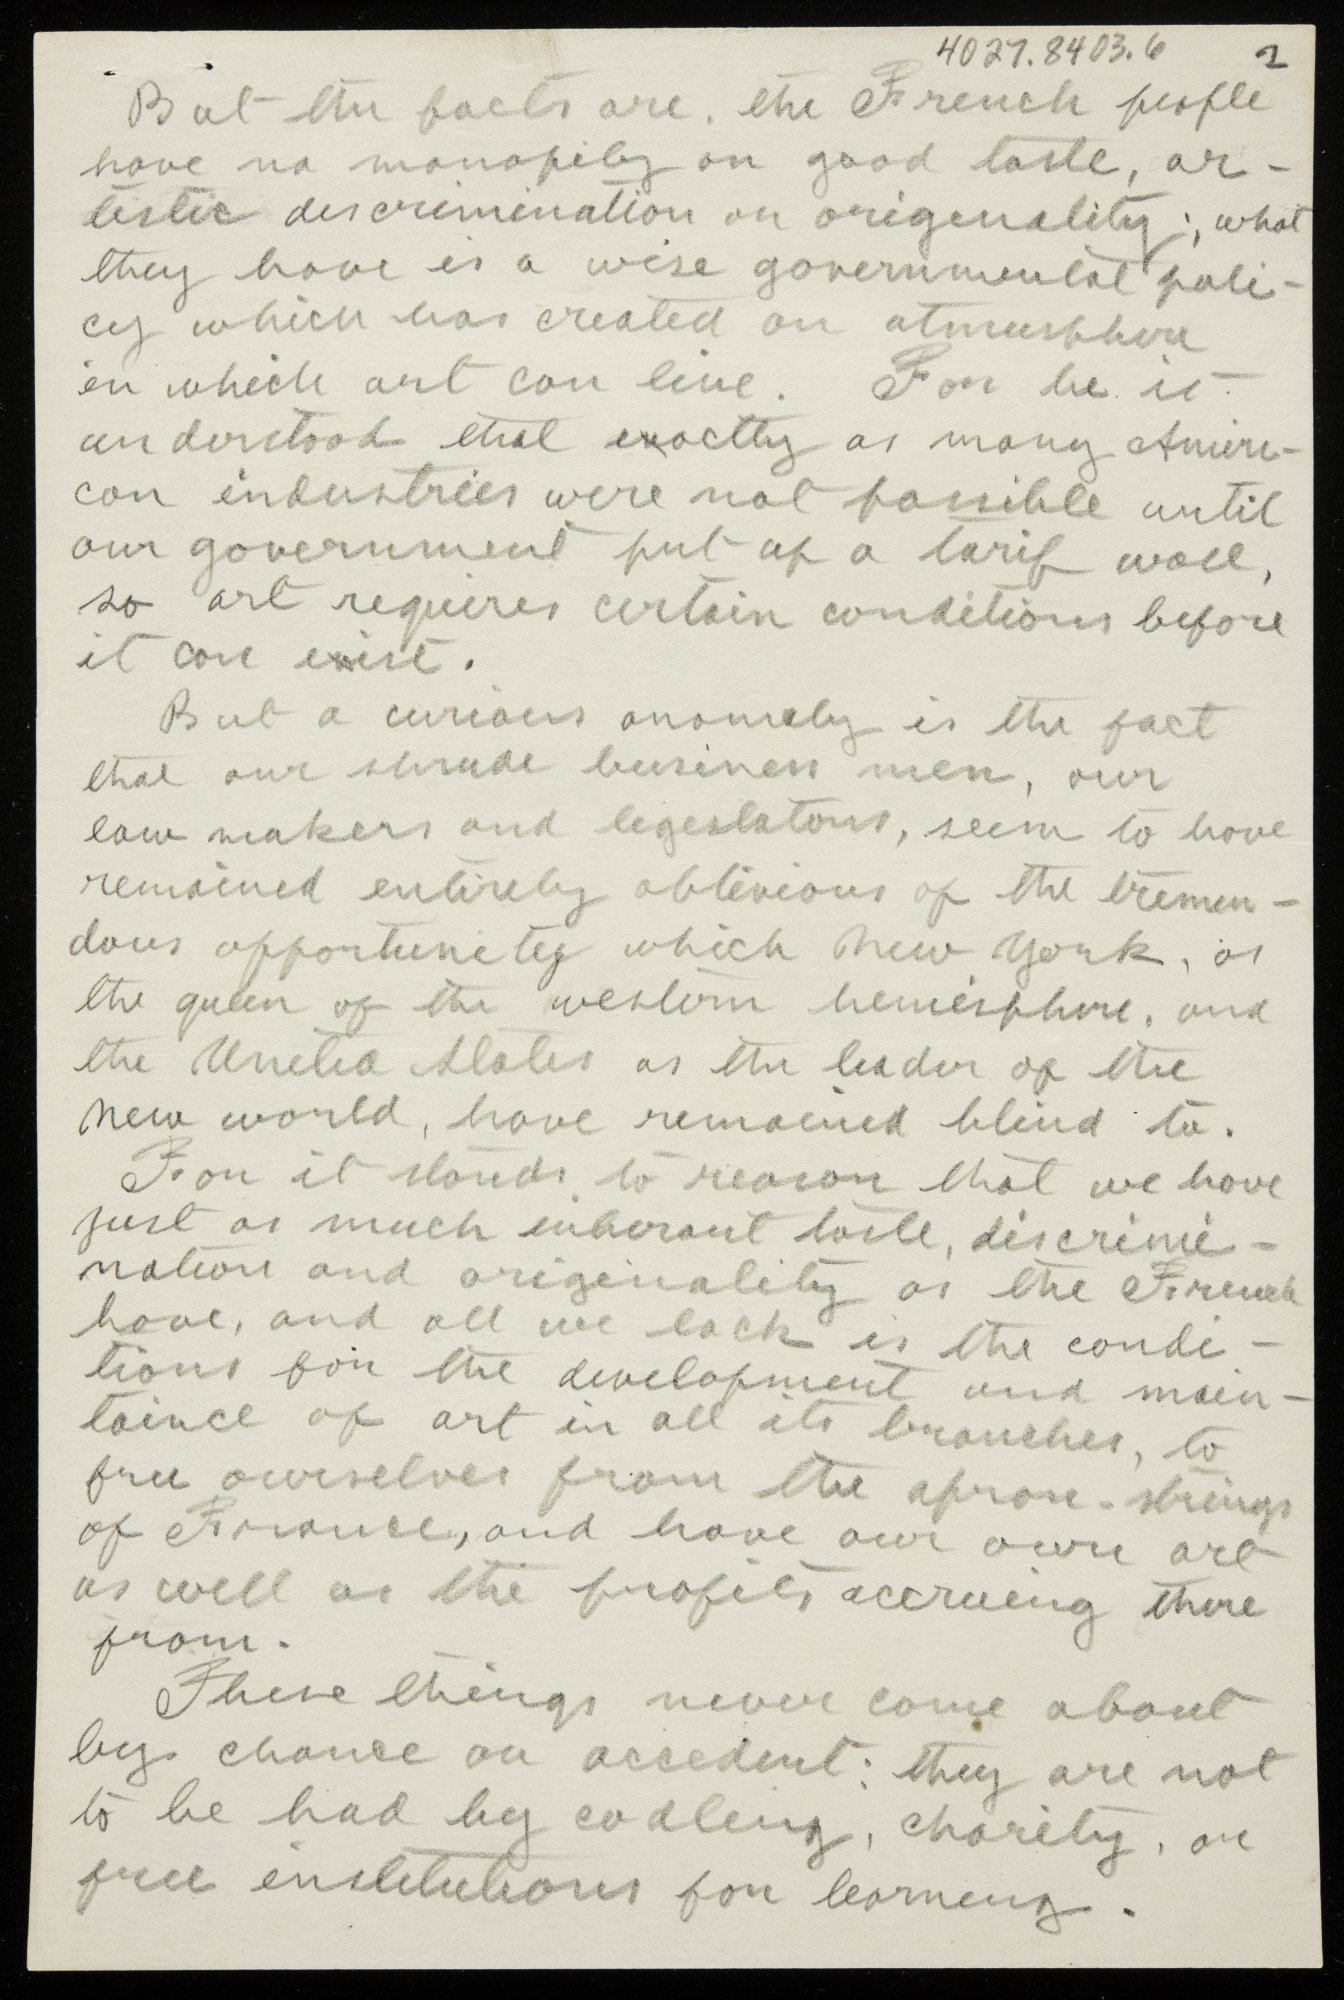 4027.8403.6 2
But the facts are, the French people
have no monopily on good taste, ar-
tistic discrimination or origenality; what
they have is a wise governmental poli-
cy which has created an atmusphere
in which art can live. For be it
understood that exactly as many Ameri-
can industries were not possible until
our government put up a tarif wall,
so art requires certain conditions before
it can exist.
But a curious anomaly is the fact
that our shrude business men, our
law makers and legeslators, seem to have
remained entirely oblivious of the tremen-
dous opportunity which New York, as
the queen of the western hemisphere, and
the United States as the leader of the
New world, have remained blind to.
For it stands to reason that we have
just as much inherant taste, discrimi-
nation and originality as the French
have, and all we lack is the condi-
tions for the development and main-
taince of art in all its branches, to
free ourselves from the apron-strings
of France, and have our own art
as well as the profits accrueing there
from.
These things never come about
by chance or accedent: they are not
to be had by codling, charity, or
free institutions for learning.